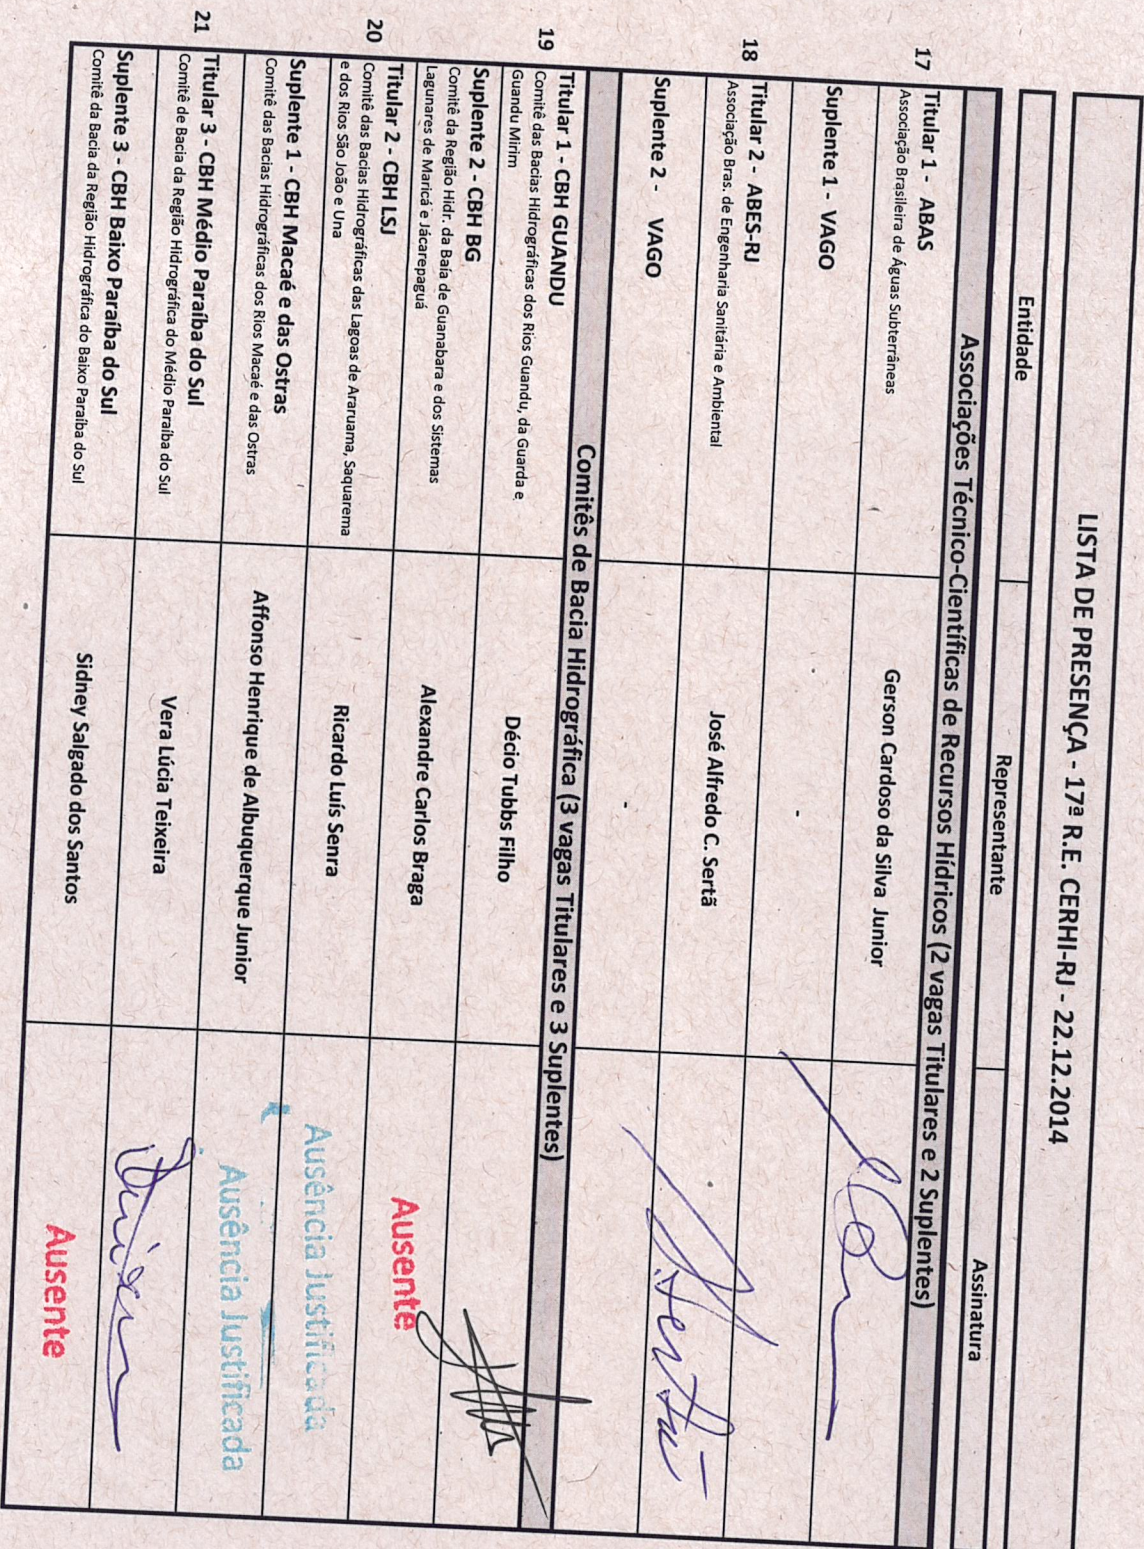 LISTA DE PRESENÇA - 17ª R.E. CERHI-RJ - 22.12.2014
Entidade Representante Assinatura
Associações Técnico-Científicas de Recursos Hídricos (2 vagas Titulares e 2 Suplentes)
17 Titular 1 - ABAS
Associação Brasileira de Águas Subterrâneas
Gerson Cardoso da Silva Junior
Suplente 1 - VAGO
-
18 Titular 2 - ABES-RJ
Associação Bras. de Engenharia Sanitária e Ambiental
José Alfredo C. Sertã
Suplente 2 - VAGO
-
Comitês de Bacia Hidrográfica (3 vagas Titulares e 3 Suplentes)
19 Titular 1 - CBH GUANDU
Comitê das Bacias Hidrográficas dos Rios Guandu, da Guarda e
Guandu Mirim
Décio Tubbs Filho
Suplente 2 - CBH BG
Comitê da Região Hidr. da Baía de Guanabara e dos Sistemas
Lagunares de Maricá e Jacarepaguá
Alexandre Carlos Braga
Ausente
20 Titular 2 - CBH LSJ
Comitê das Bacias Hidrográficas das Lagoas de Araruama, Saquarema
e dos Rios São João e Una
Ricardo Luís Senra
Ausência Justificada
Suplente 1 - CBH Macaé e das Ostras
Comitê das Bacias Hidrográficas dos Rios Macaé e das Ostras
Affonso Henrique de Albuquerque Junior
Ausência Justificada
21 Titular 3 - CBH Médio Paraíba do Sul
Comitê de Bacia da Região Hidrográfica do Médio Paraíba do Sul
Vera Lúcia Teixeira
Suplente 3 - CBH Baixo Paraíba do Sul
Comitê da Bacia da Região Hidrográfica do Baixo Paraíba do Sul
Sidney Salgado dos Santos
Ausente